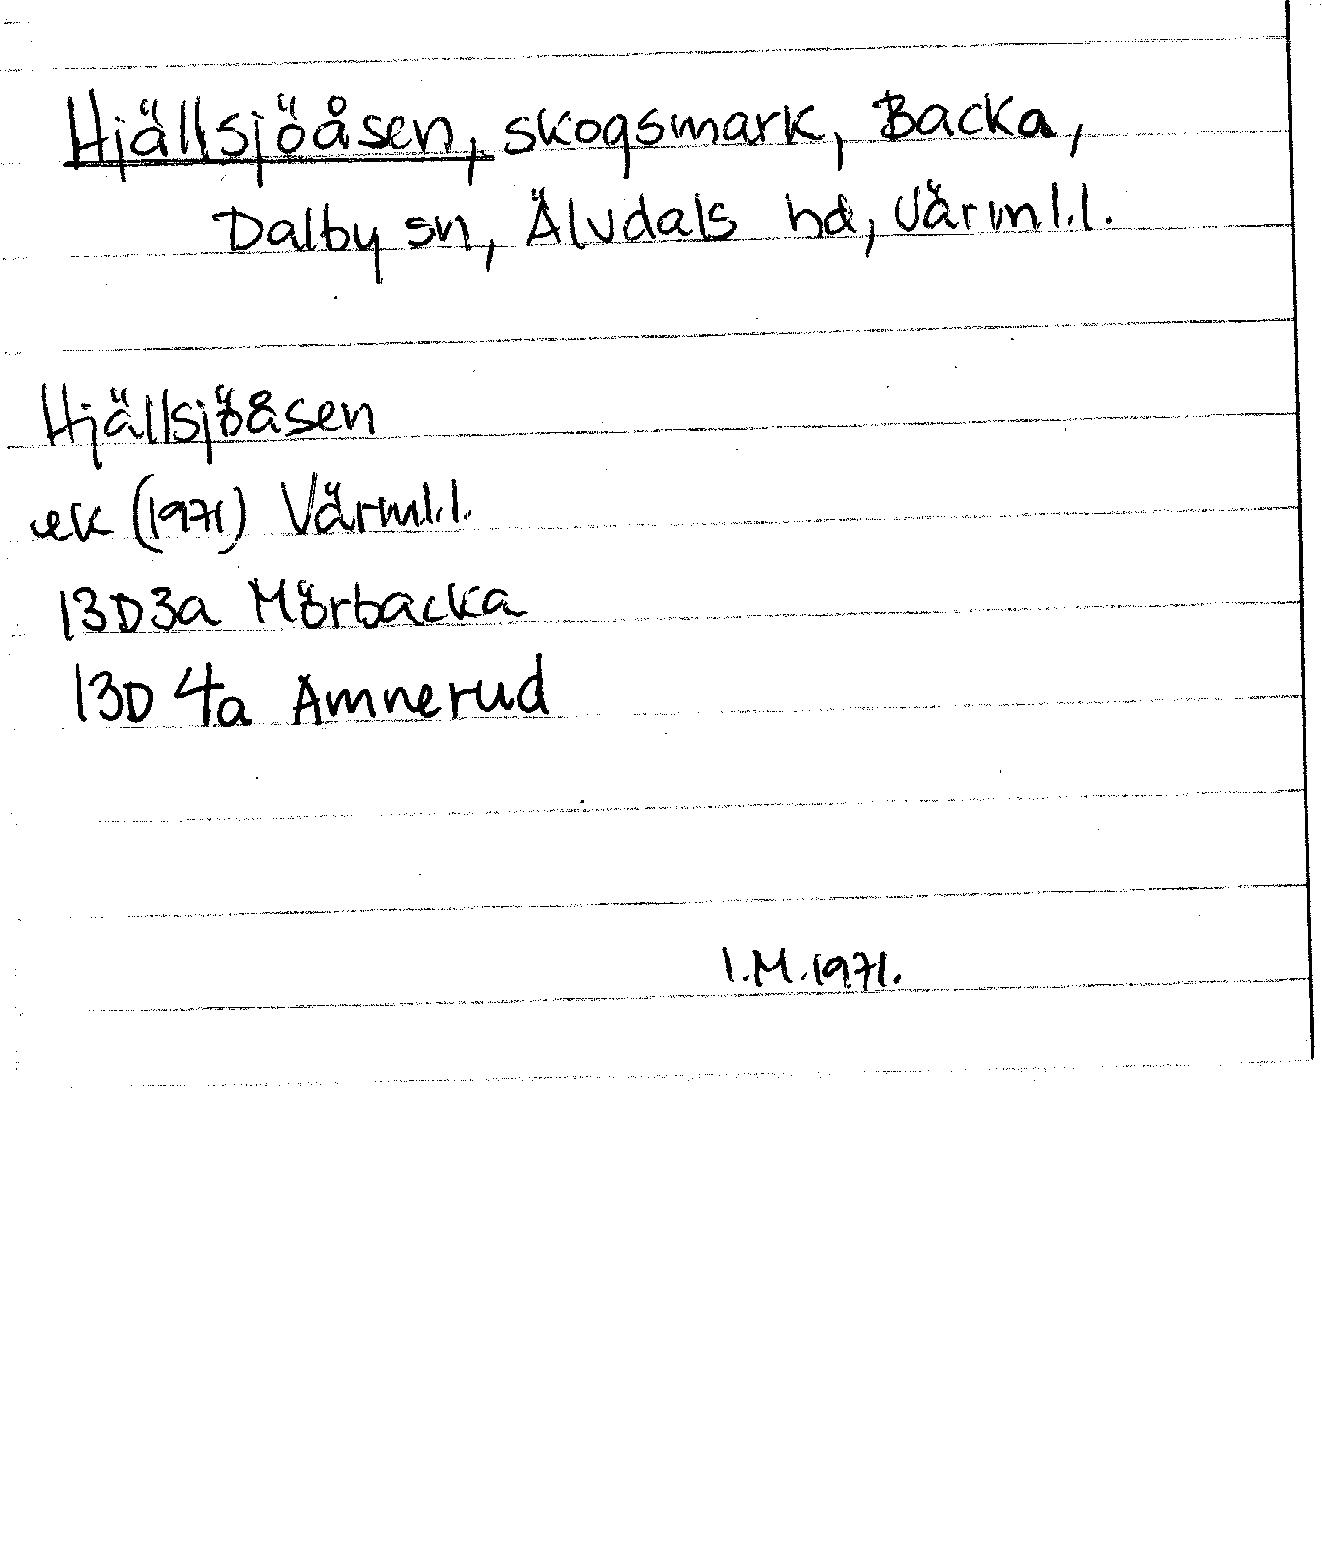 Hjällsjöåsen, skogsmark, Backa,
Dalby sn, Älvdals hd, Värml.l.
Hjällsjöåsen
ek (1971) Värml.l.
13D3a Mörbacka
13D 4a Ämnerud
I.M.1971.